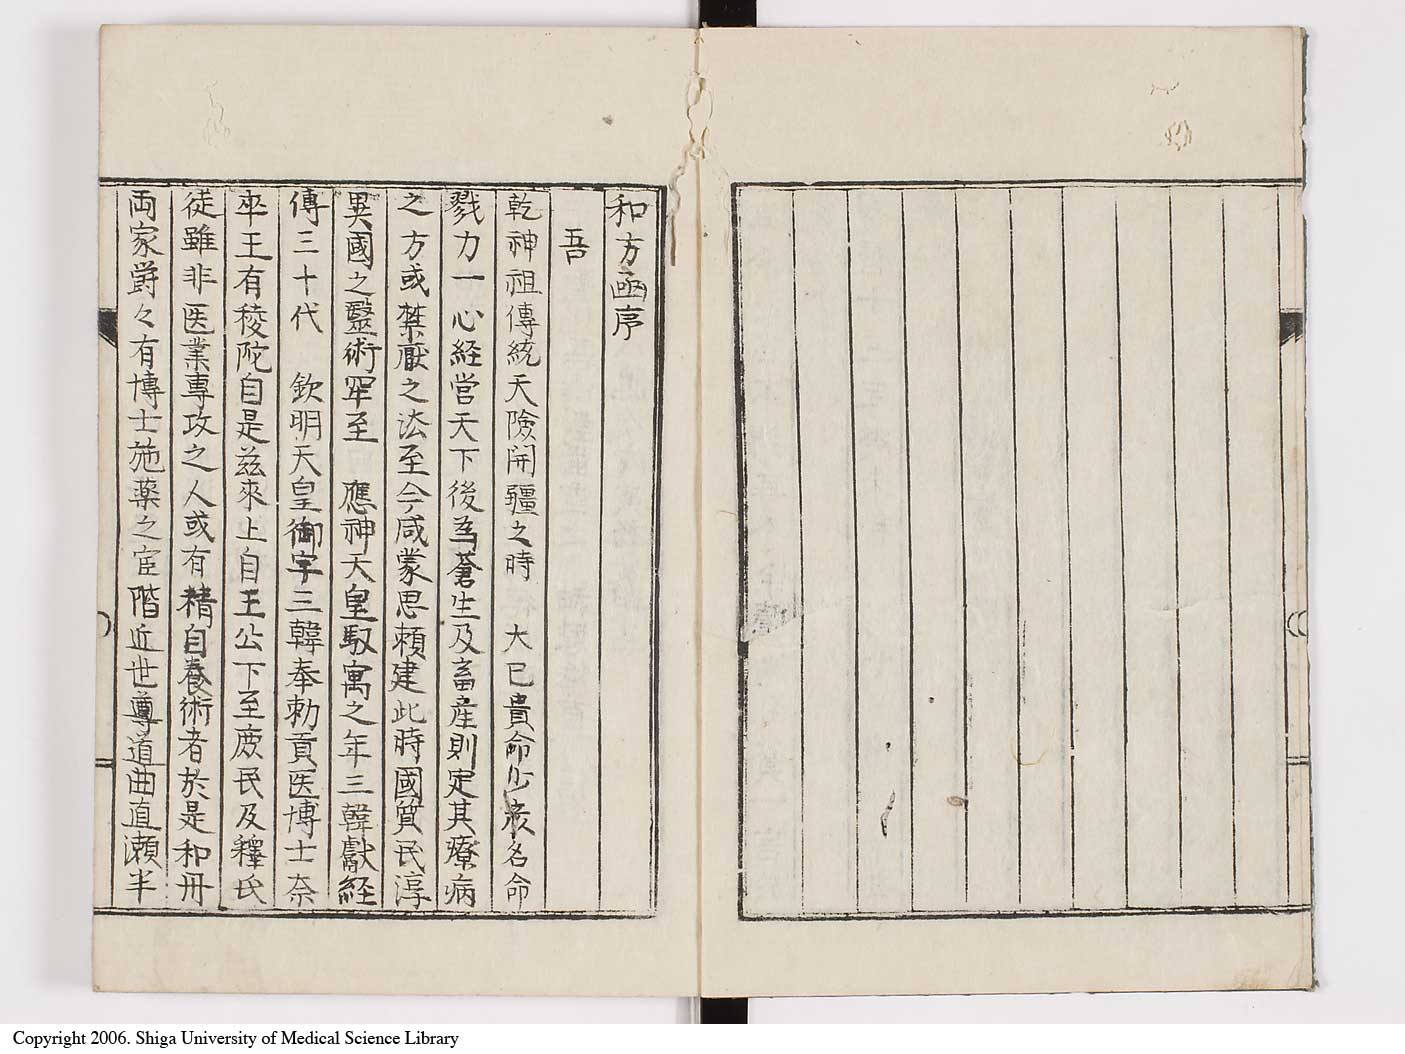 和方函序
吾
乾神祖傳統天險開疆之時 大已貴命少彦名命
戮力一心経営天下後為蒼生及畜産則定其療病
之方或禁厭之法至今咸蒙恩頼建此時國質民淳
異國之醫術罕至 應神天皇馭寓之年三韓獻経
傳三十代 欽明天皇御宇三韓奉勅貢医博士奈
卒王有稜陀自是茲來上自王公下至庻民及釋氏
徒雖非医業專攻之人或有精自養術者於是和丹
両家爵々有博士施薬之宦階近世尊道曲直瀬半
Copyright 2006. Shiga University of Medical Science Library